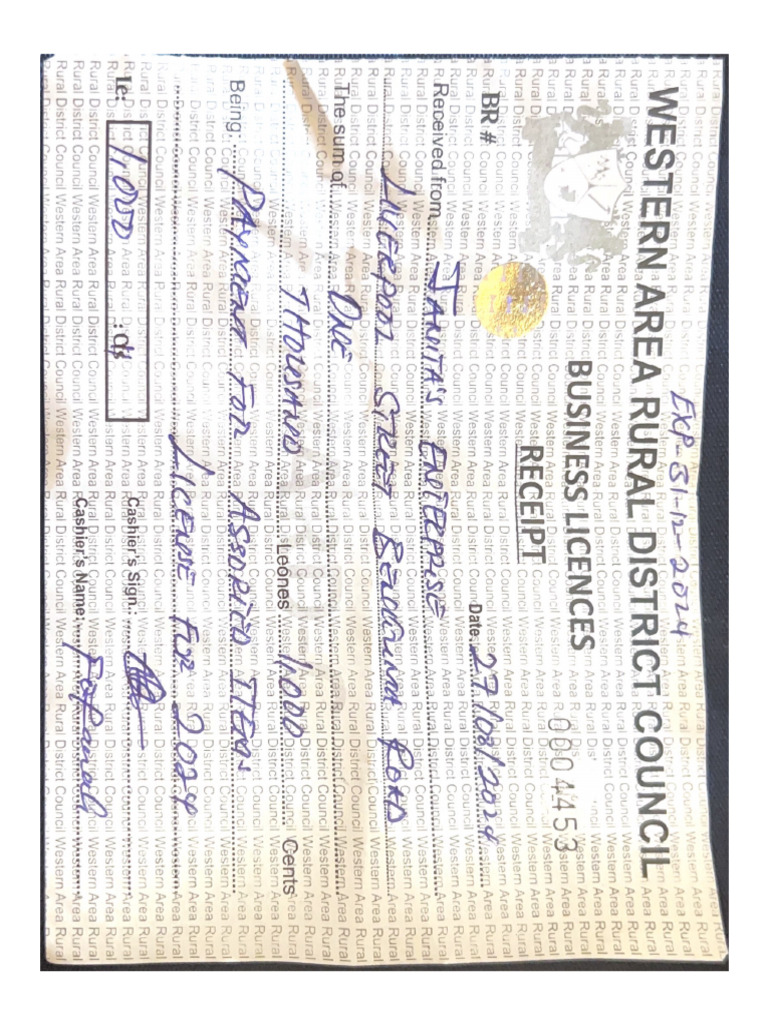 EXP-31-12-2024
WESTERN AREA RURAL DISTRICT COUNCIL
BUSINESS LICENCES
0004453
RECEIPT
BR #
Date: 27/08/2024
Received from JANITA'S ENTERPRISE
LIVERPOOL STREET BELONGINA ROAD
The sum of ONE
THOUSAND Leones 1,000 Cents
Being: PAYMENT FOR ASSORTED ITEMS
LICENSE FOR 2024
Le: 1,000 : 00
Cashier's Sign.:
Cashier's Name: